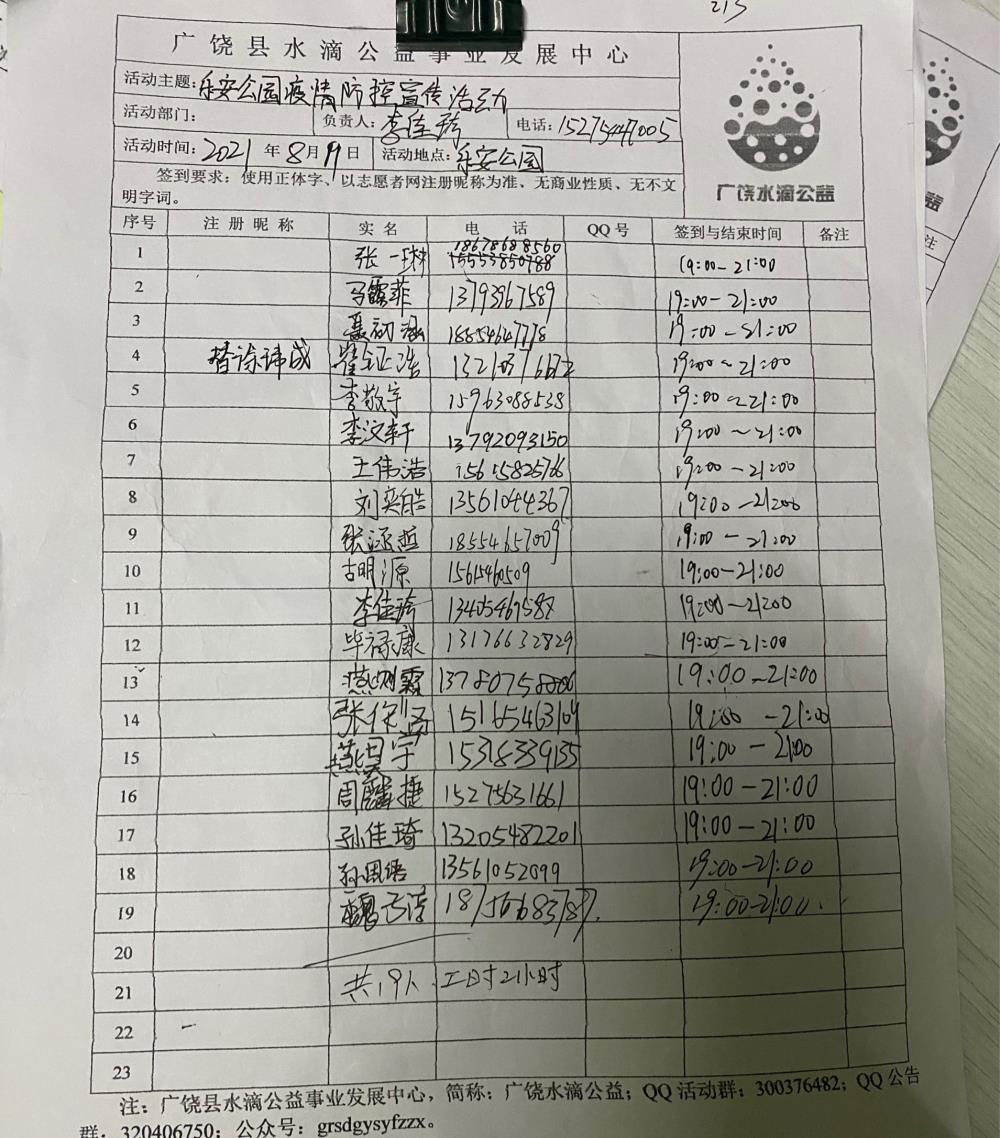 213
广饶县水滴公益事业发展中心
活动主题:乐安公园疫情防控宣传活动
活动部门: 负责人:李佳琦 电话:15275447005
活动时间:2021年8月19日 活动地点:乐安公园
广饶水滴公益
签到要求:使用正体字、以志愿者网注册昵称为准、无商业性质、无不文
明字词。
序号 注册昵称 实名 电话 QQ号 签到与结束时间 备注
18678688560
1 张一琳 15553850788 19:00-21:00
2 马霈菲 13793967589 19:00-21:00
3 聂初涵 18854647778 19:00-21:00
4 替徐祎成 崔证浩 19:00~21:00
5 李敬宇 15963088538 19:00~21:00
6 李汶轩 13792093150 19:00~21:00
7 王伟浩 15615825766 19:00-21:00
8 刘奕皓 13561044367 19:00-21:00
9 张涵哲 18554657009 19:00-21:00
10 古明源 15615460509 19:00-21:00
11 李佳琦 13405467588 19:00-21:00
12 毕禄康 13176632829 19:00-21:00
13 19:00-21:00
14 15165463109 19:00-21:00
15 燕昊宇 15318339135 19:00-21:00
16 周麟捷 15275631661 19:00-21:00
17 孙佳琦 13205482201 19:00-21:00
18 孙思语 13561052099 19:00-21:00
19 19:00-21:00
20
21 共19人 工时2小时
22
23
注:广饶县水滴公益事业发展中心,简称:广饶水滴公益;QQ活动群:300376482;QQ公告
群:320406750;公众号:grsdgysyfzzx。